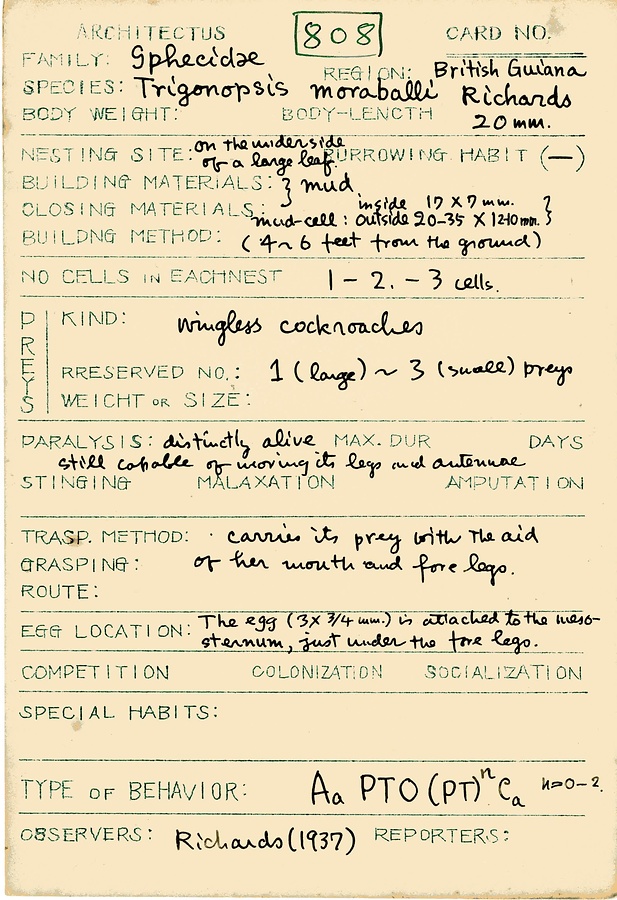 ARCHITECTUS 808 CARD NO.
FAMILY: Sphecidae REGION: British Guiana
SPECIES: Trigonopsis moraballi Richards
BODY WEIGHT: BODY-LENGTH 20 mm.
NESTING SITE: on the underside of a large leaf. BURROWING HABIT (—)
BUILDING MATERIALS: } mud
CLOSING MATERIALS: mud-cell: inside 17 X 7 mm. outside 20-35 X 12-10 mm. }
BUILDNG METHOD: (4~6 feet from the ground)
NO CELLS IN EACHNEST 1 - 2. - 3 cells.
PREYS
KIND: wingless cockroaches
RRESERVED NO.: 1 (large) ~ 3 (small) preys
WEICHT OR SIZE:
PARALYSIS: distinctly alive MAX. DUR DAYS
still capable of moving its legs and antennae
STINGING MALAXATION AMPUTATION
TRASP. METHOD: carries its prey with the aid
GRASPING: of her mouth and fore legs.
ROUTE:
EGG LOCATION: The egg (3X 3/4 mm.) is attached to the meso-
sternum, just under the fore legs.
COMPETITION COLONIZATION SOCIALIZATION
SPECIAL HABITS:
TYPE OF BEHAVIOR: Aa PTO (PT)ⁿ Ca n=0-2.
OBSERVERS: Richards (1937) REPORTERS: